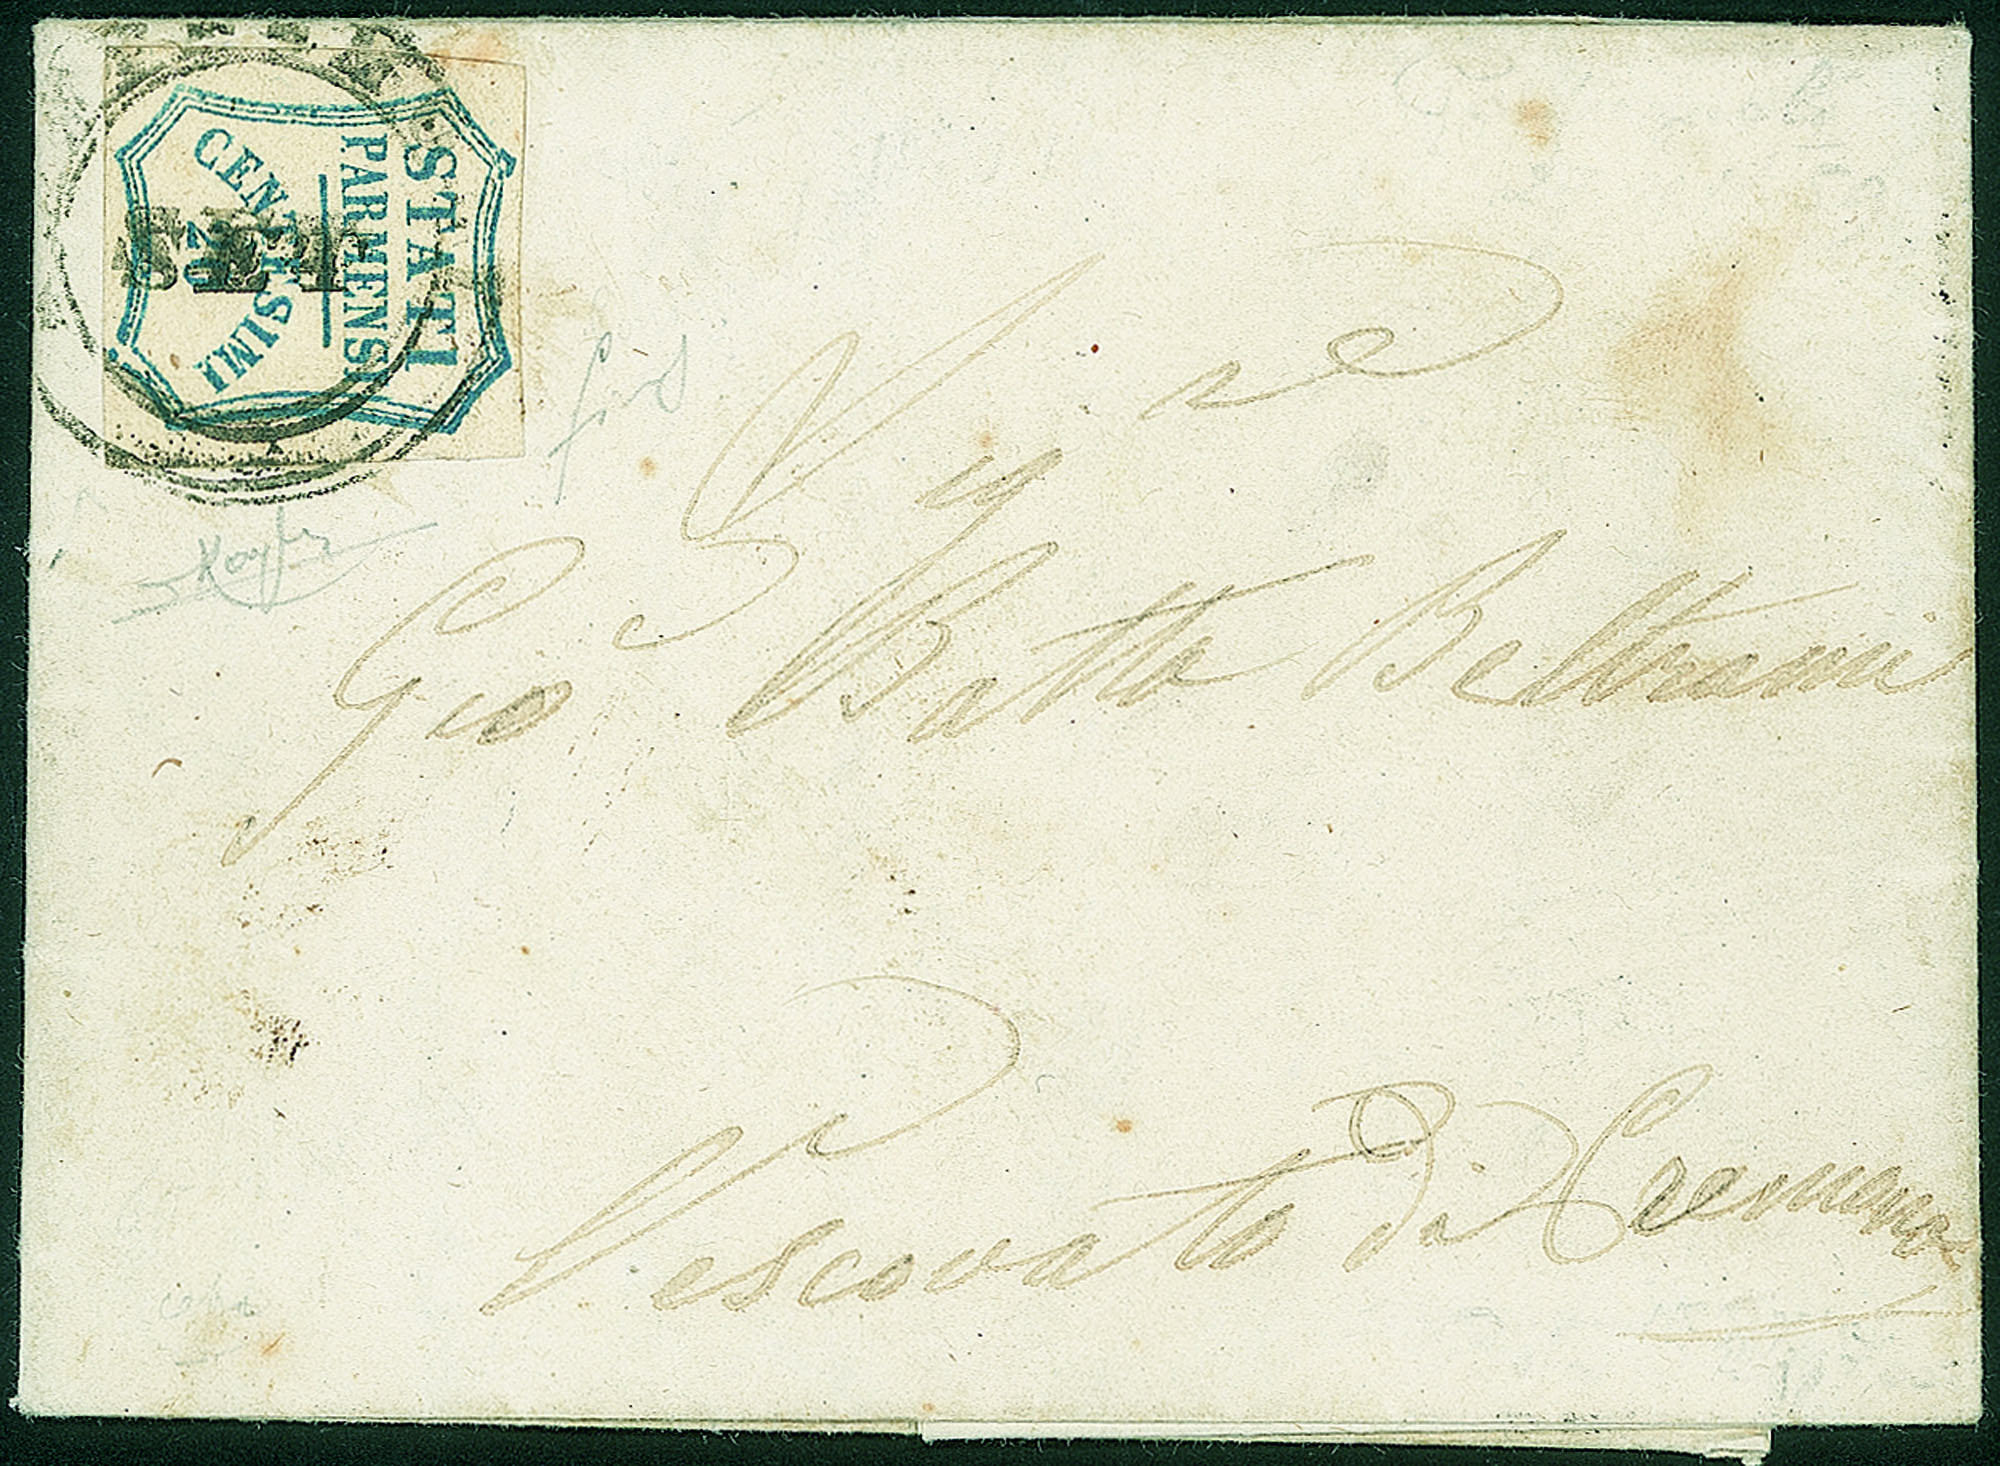 STATI
PARMENSI
CENTESIMI
20
SET
Gio Batta Beltrami
Vescovato di Cremona